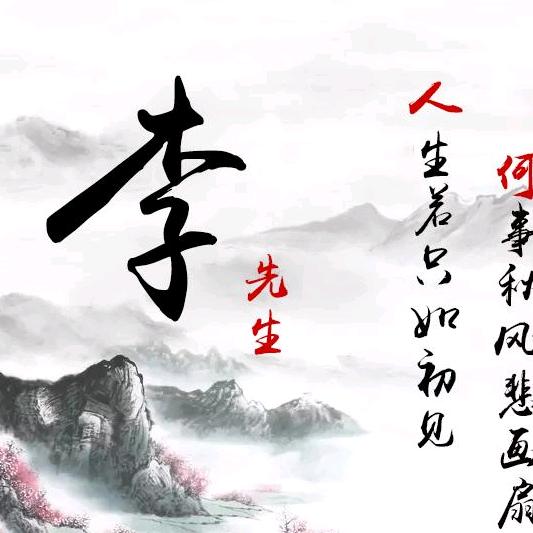 李
先生
人生若只如初见
何事秋风悲画扇